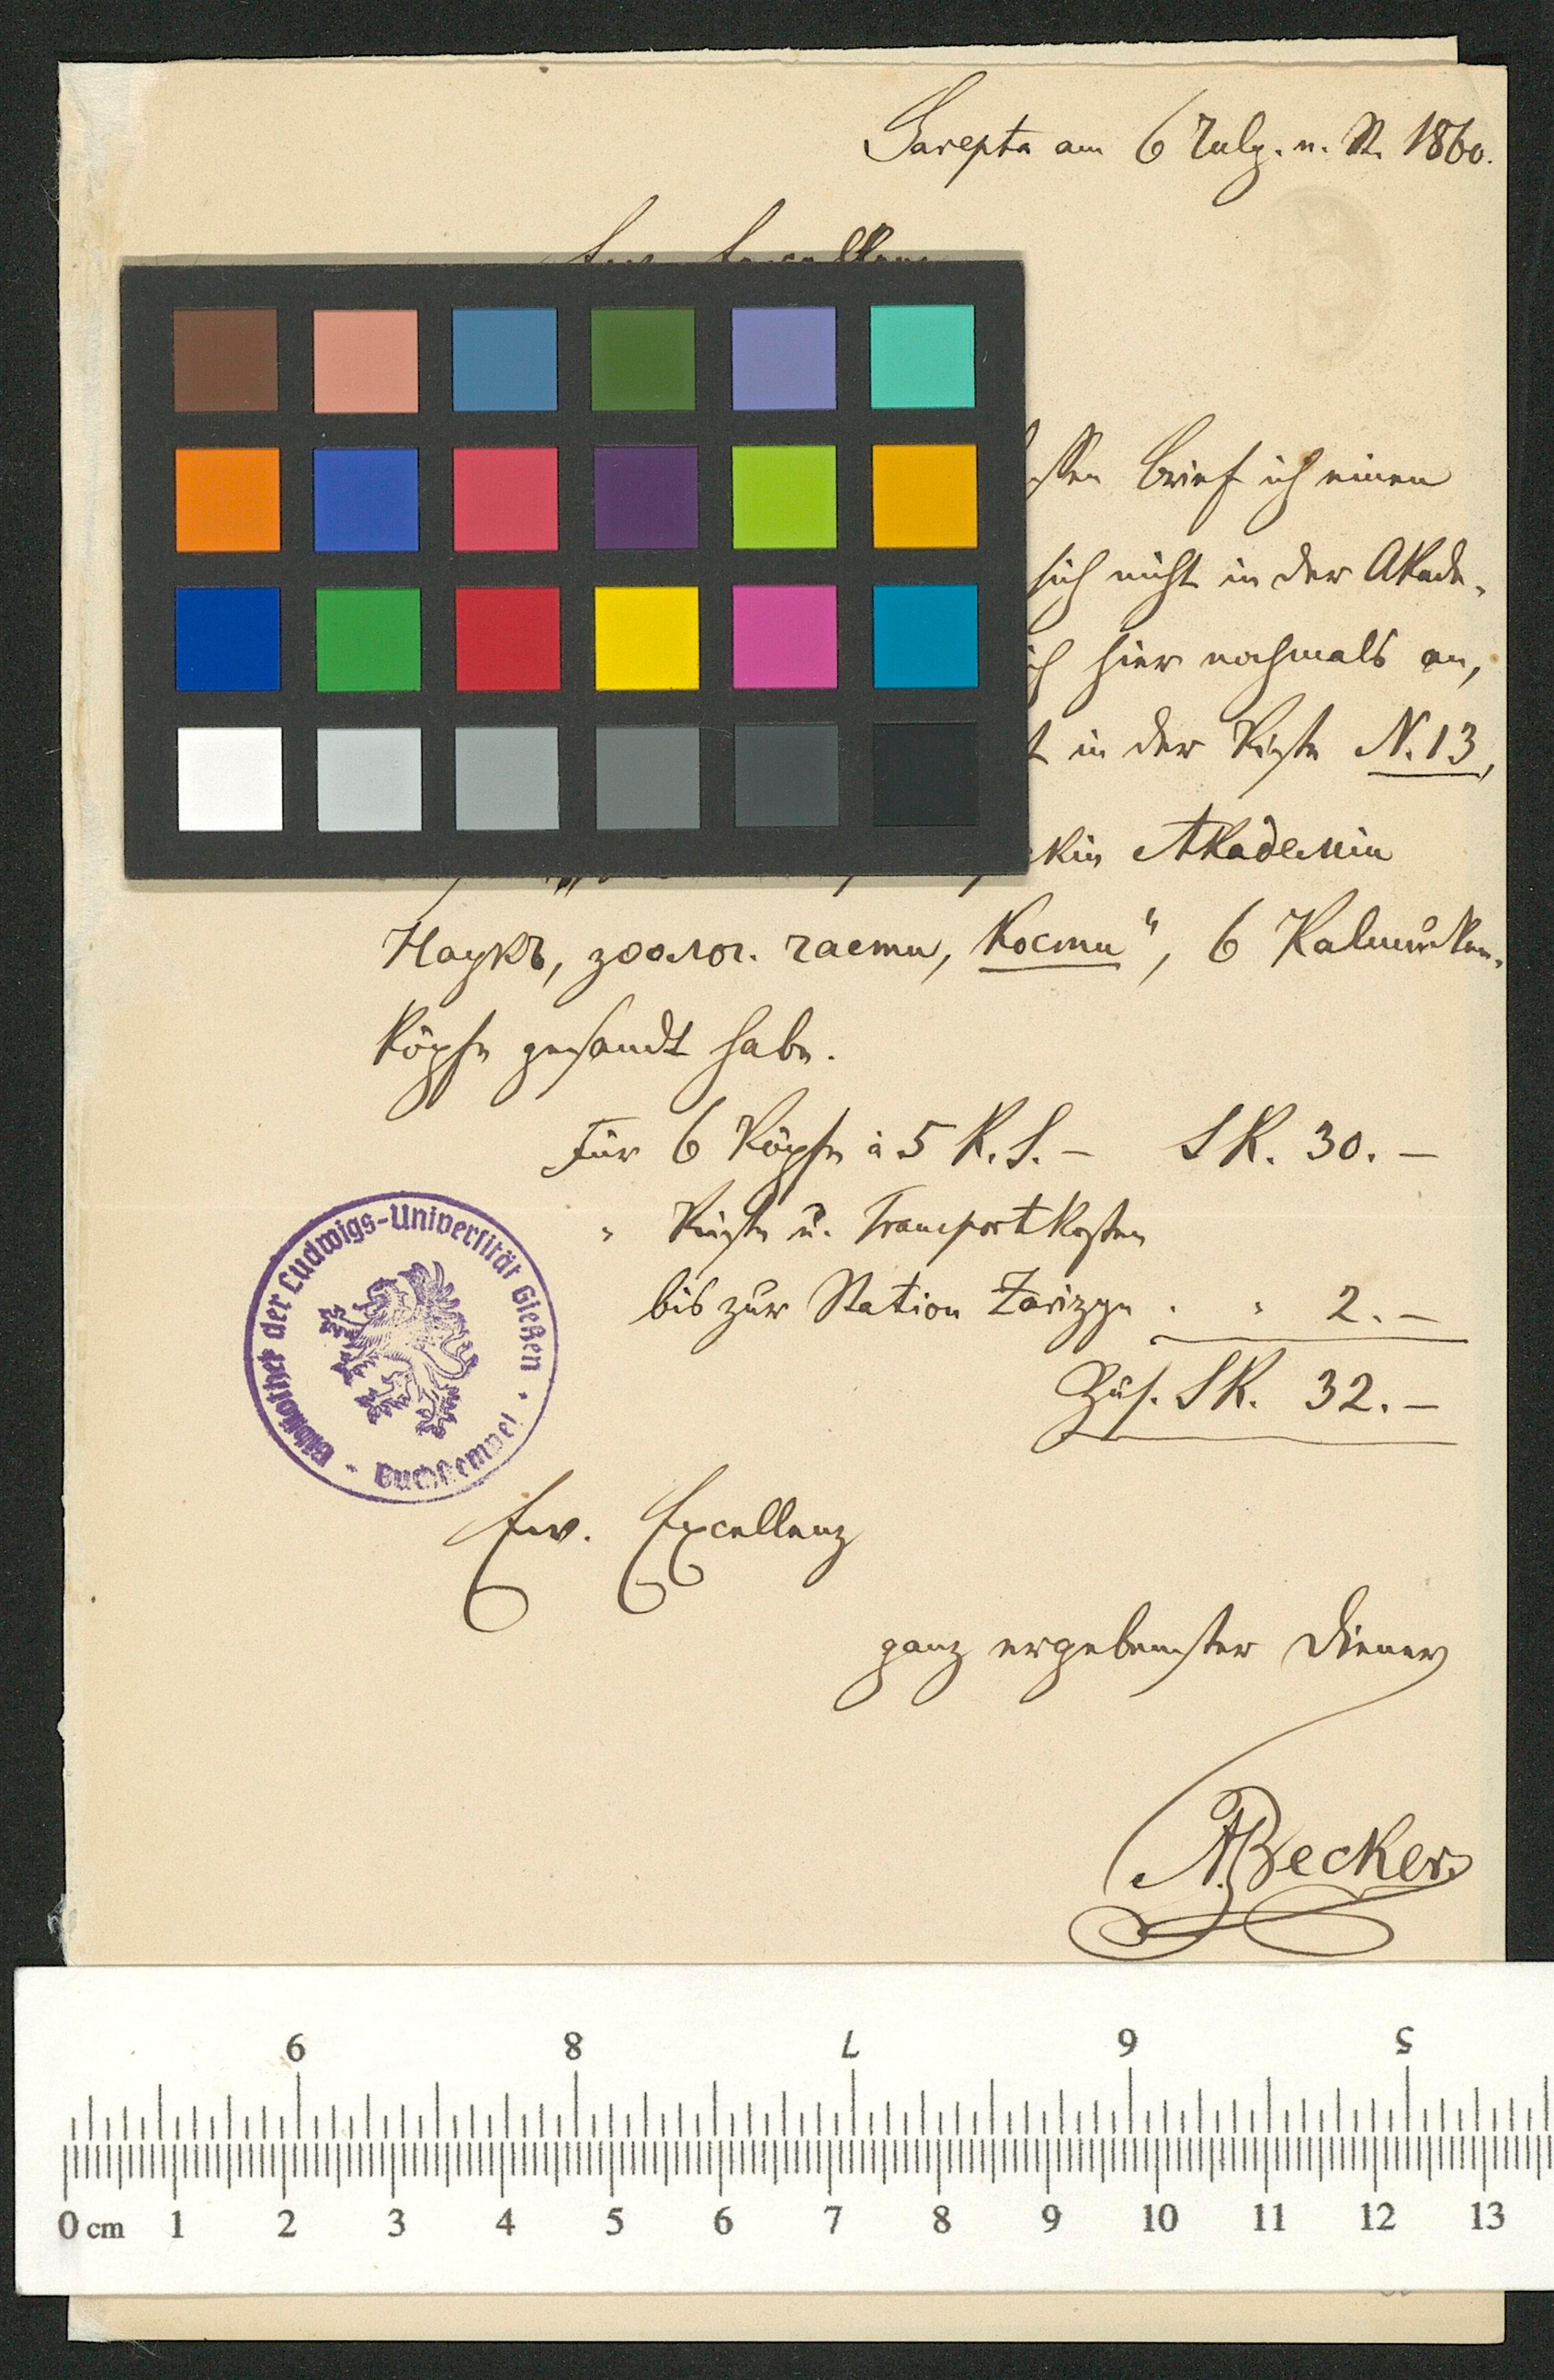 Sarepta am 6 July. n. St. 1860.
Ew. Excellenz
Brief ich einen
sich nicht in der Akade-
hier nochmals an,
in der Kiste N. 13,
Академіи
Наукъ, зоолог. части, Кости", 6 Kalmücken-
köpfe gesandt habe.
Für 6 Köpfe à 5 R. S. – SR. 30. –
" Kiste u. Transportkosten
bis zur Station Zarizyn . " 2. –
Zus. SR. 32. –
Bibliothek der Ludwigs-Universität Gießen · Buchstempel ·
Ew. Excellenz
ganz ergebenster Diener
A. Becker.
9 8 7 6 5
0 cm 1 2 3 4 5 6 7 8 9 10 11 12 13